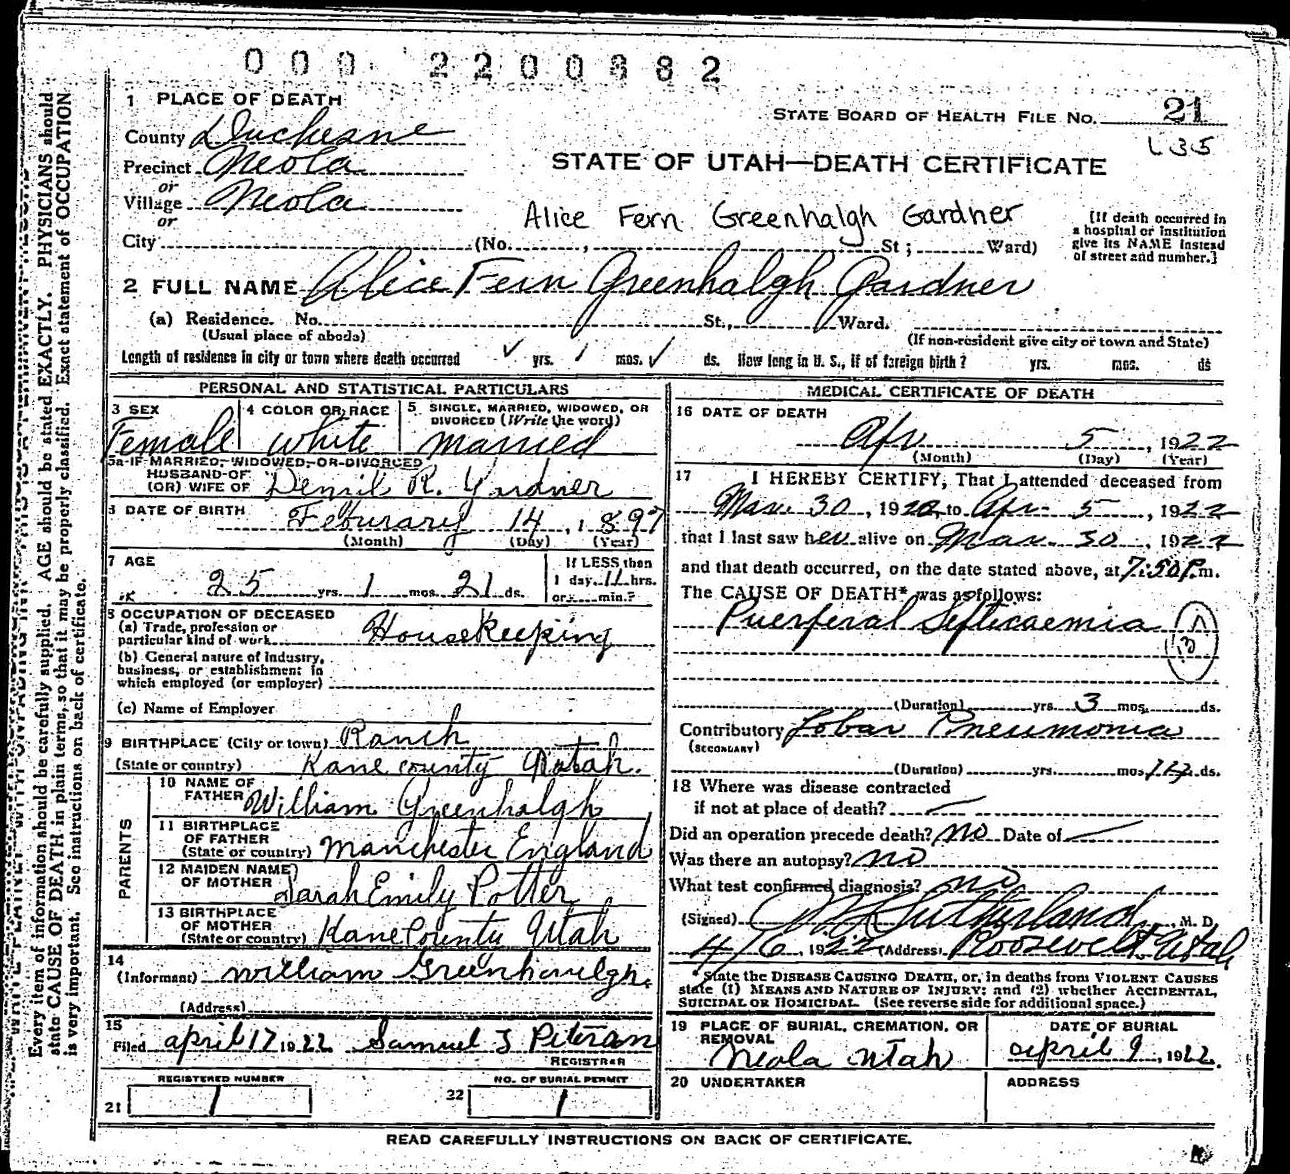 000 2200882
1 PLACE OF DEATH
STATE BOARD OF HEALTH FILE NO. 21
L35
County Duchesne
Precinct Neola
or
Village Neola
or
STATE OF UTAH—DEATH CERTIFICATE
Alice Fern Greenhalgh Gardner
City (No. , St ; Ward)
[If death occurred in
a hospital or institution
give its NAME instead
of street and number.]
2 FULL NAME Alice Fern Greenhalgh Gardner
(a) Residence. No. St., Ward.
(Usual place of abode) (If non-resident give city or town and State)
Length of residence in city or town where death occurred ✓ yrs. 1 mos. ✓ ds. How long in U. S., if of foreign birth? yrs. mos. ds
PERSONAL AND STATISTICAL PARTICULARS
3 SEX
Female
4 COLOR OR RACE
white
5 SINGLE, MARRIED, WIDOWED, OR
DIVORCED (Write the word)
married
5a IF MARRIED, WIDOWED, OR DIVORCED
HUSBAND OF
(OR) WIFE OF R. Gardner
DATE OF BIRTH Feburary 14, 1897
(Month) (Day) (Year)
7 AGE
25 yrs. 1 mos. 21 ds.
If LESS than
1 day. 11 hrs.
or min.?
8 OCCUPATION OF DECEASED
(a) Trade, profession or
particular kind of work Housekeeping
(b) General nature of industry,
business, or establishment in
which employed (or employer)
(c) Name of Employer
9 BIRTHPLACE (City or town) Ranch
(State or country) Kane county Utah.
PARENTS
10 NAME OF
FATHER William Greenhalgh
11 BIRTHPLACE
OF FATHER
(State or country) Manchester England
12 MAIDEN NAME
OF MOTHER Sarah Emily Potter
13 BIRTHPLACE
OF MOTHER
(State or country) Kane County Utah
14
(Informant) William Greenhalgh.
(Address)
15
Filed april 17 1922 Samuel
REGISTRAR
REGISTERED NUMBER
21 1
NO. OF BURIAL PERMIT
22 1
MEDICAL CERTIFICATE OF DEATH
16 DATE OF DEATH
Apr 5, 1922
(Month) (Day) (Year)
17 I HEREBY CERTIFY, That I attended deceased from
Mar. 30, 1922, to Apr. 5, 1922
that I last saw her alive on Mar. 30, 1922
and that death occurred, on the date stated above, at 7:50 P.m.
The CAUSE OF DEATH* was as follows:
Puerperal Septicaemia
(Duration) yrs. 3 mos. ds.
Contributory Lobar Pneumonia
(SECONDARY)
(Duration) yrs. mos. ds.
18 Where was disease contracted
if not at place of death?
Did an operation precede death? no Date of
Was there an autopsy? no
What test confirmed diagnosis? no
(Signed) Sutherland, M. D.
4/6, 1922 (Address) Roosevelt Utah
*State the DISEASE CAUSING DEATH, or, in deaths from VIOLENT CAUSES
state (1) MEANS AND NATURE OF INJURY; and (2) whether ACCIDENTAL,
SUICIDAL OR HOMICIDAL. (See reverse side for additional space.)
19 PLACE OF BURIAL, CREMATION, OR
REMOVAL
Neola Utah
DATE OF BURIAL
april 9, 1922.
20 UNDERTAKER
ADDRESS
READ CAREFULLY INSTRUCTIONS ON BACK OF CERTIFICATE.
Every item of information should be carefully supplied. AGE should be stated EXACTLY. PHYSICIANS should
state CAUSE OF DEATH in plain terms, so that it may be properly classified. Exact statement of OCCUPATION
is very important. See instructions on back of certificate.